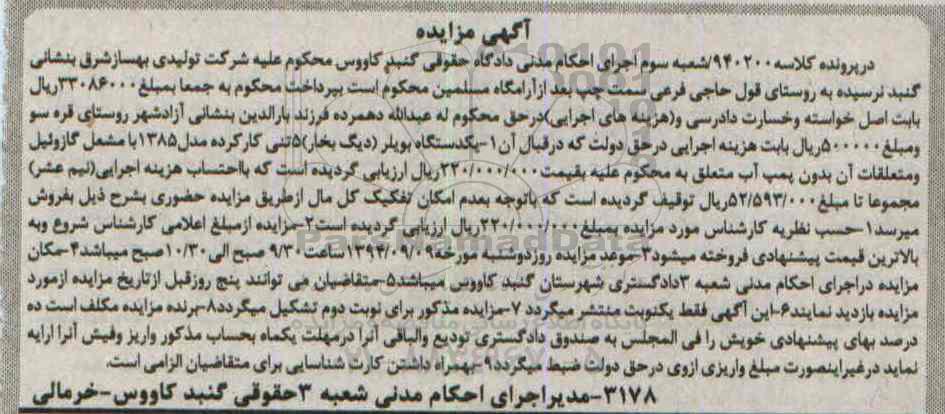 آگهی مزایده
درپرونده کلاسه ۹۴۰۲۰۰/شعبه سوم اجرای احکام مدنی دادگاه حقوقی گنبد کاووس محکوم علیه شرکت تولیدی بهساز شرق بنشانی
گنبد نرسیده به روستای قول حاجی فرعی سمت چپ بعد از آرامگاه مسلمین محکوم است بپرداخت محکوم به جمعا بمبلغ ۳۳۰۸۶۰۰۰ ریال
بابت اصل خواسته وخسارت دادرسی و(هزینه های اجرایی)درحق محکوم له عبدالله دهمرده فرزند یارالدین بنشانی آزادشهر روستای قره سو
ومبلغ ۵۰۰۰۰۰ ریال بابت هزینه اجرایی درحق دولت که درقبال آن ۱-یکدستگاه بویلر (دیگ بخار)۵تنی کارکرده مدل ۱۳۸۵ با مشعل گازوئیل
ومتعلقات آن بدون پمپ آب متعلق به محکوم علیه بقیمت ۲۲۰/۰۰۰/۰۰۰ ریال ارزیابی گردیده است که بااحتساب هزینه اجرایی(نیم عشر)
مجموعا تا مبلغ ۵۲/۵۹۳/۰۰۰ ریال توقیف گردیده است که باتوجه بعدم امکان تفکیک کل مال ازطریق مزایده حضوری بشرح ذیل بفروش
میرسد ۱-حسب نظریه کارشناس مورد مزایده بمبلغ ۲۲۰/۰۰۰/۰۰۰ ریال ارزیابی گردیده است ۲-مزایده ازمبلغ اعلامی کارشناس شروع وبه
بالاترین قیمت پیشنهادی فروخته میشود ۳-موعد مزایده روزدوشنبه مورخه ۱۳۹۴/۰۹/۰۹ ساعت ۹/۳۰ صبح الی ۱۰/۳۰ صبح میباشد ۴-مکان
مزایده دراجرای احکام مدنی شعبه ۳ دادگستری شهرستان گنبد کاووس میباشد ۵-متقاضیان می توانند پنج روزقبل ازتاریخ مزایده ازمورد
مزایده بازدید نمایند ۶-این آگهی فقط یکنوبت منتشر میگردد ۷-مزایده مذکور برای نوبت دوم تشکیل میگردد ۸-برنده مزایده مکلف است ده
درصد بهای پیشنهادی خویش را فی المجلس به صندوق دادگستری تودیع والباقی آنرا درمهلت یکماه بحساب مذکور واریز وفیش آنرا ارایه
نماید درغیراینصورت مبلغ واریزی ازوی درحق دولت ضبط میگردد ۹-بهمراه داشتن کارت شناسایی برای متقاضیان الزامی است.
۳۱۷۸-مدیراجرای احکام مدنی شعبه ۳ حقوقی گنبد کاووس-خرمالی
ParsNamadData